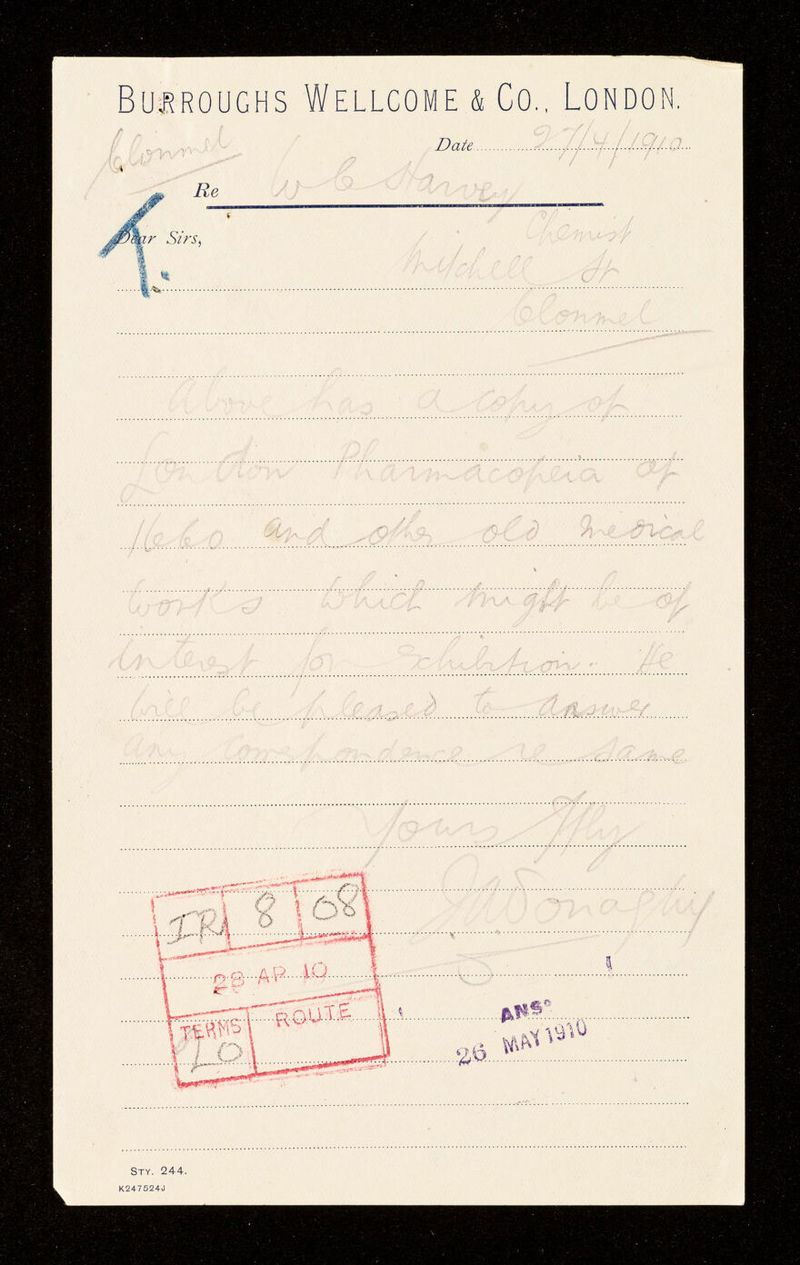 BURROUGHS WELLCOME & CO., LONDON.
Clonmel
Date 27/4/1910
Re W C Harvey
Dear Sirs,
Chemist
Mitchell St
Clonmel
Above has a copy of
London Pharmacopeia of
and other old medical
works which might be of
interest for Exhibition. He
will be pleased to answer
any correspondence re same
Yours ffly
IR 8 08
28 AP 10
TERMS ROUTE
LO
ANSD
26 MAY 1910
STY. 244.
K247524J